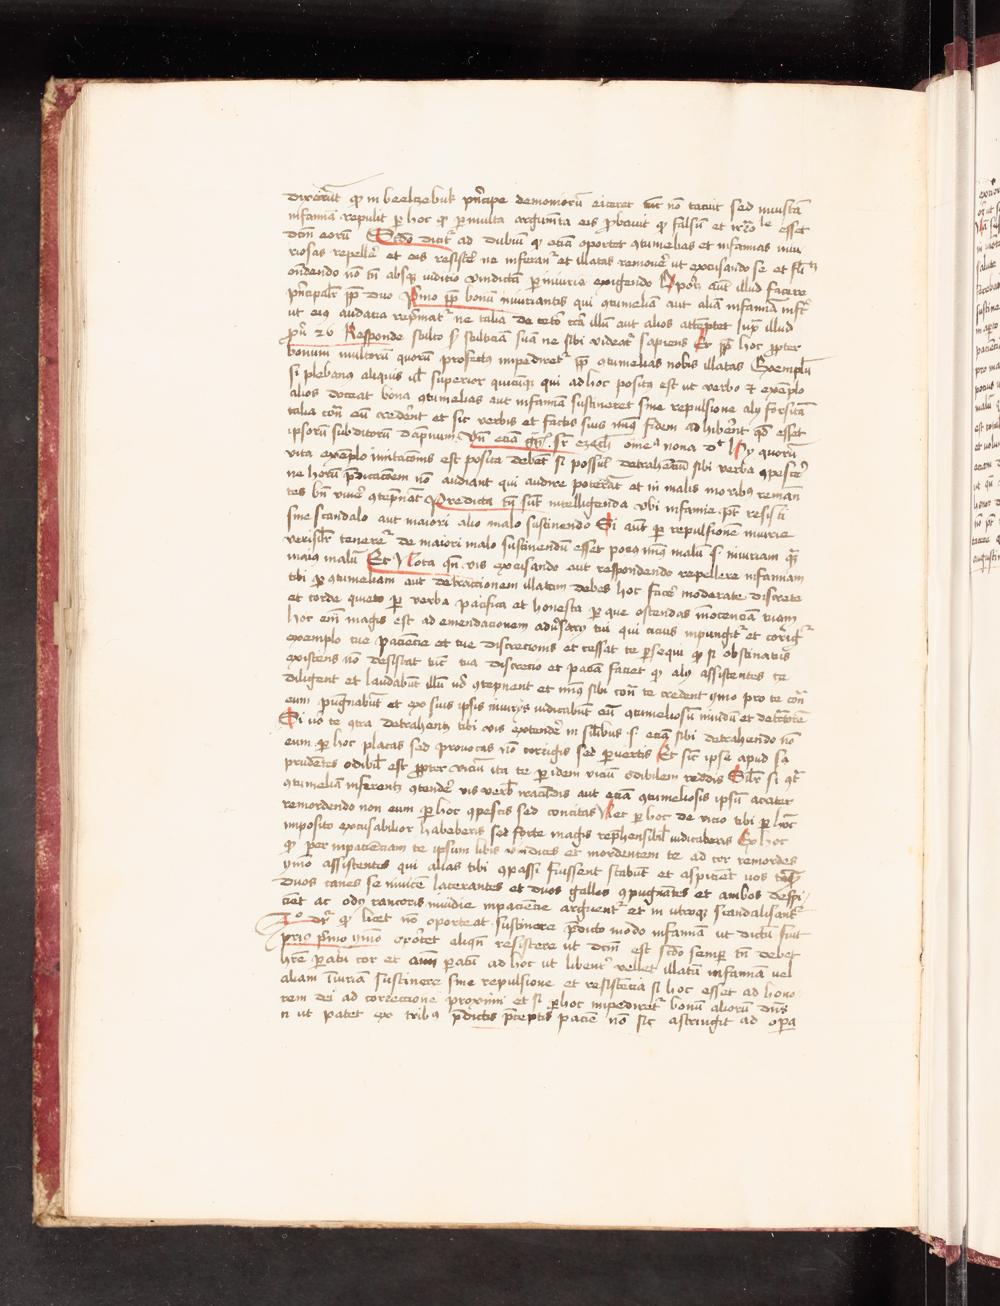 dixerūt qͥ in beelzebub pͥncipe demonioꝝ eiceret tūc nō tacuit sed iniustā
infamiā repulit ꝑ hoc qͥ ꝑ multa argumēta eis ꝓbauit qͥ falsū et esset
dcm̄ eorū Scdo dicitᷣ ad dubiū qͥ eciā oportet ꝯtumelias et infamias iniu
riosas repellere et eis resistere ne inferanᷣ et illatas remouere ut excusando se et
ondendo nō tn̄ absqꝫ iudicio vindictā ꝑ iniuria exigendo aūt illud facere
pͥncipalr̄ ꝓpt̄ duo Pͥmo ꝓpt̄ bonū iniuriantis qui ꝯtumeliā aut aliā infamiā īfert
ut eiꝰ audacia repͥmatᷣ ne talia de cetero ꝯtra illū aut alios attemptet iuxta illud
ꝓuͥ 26 Responde stulto scd̄m stulticiā suā ne sibi videatᷣ sapiens Et ꝓpt̄ hoc ꝓpter
bonum multorū quorū profectꝰ impediretᷣ ꝓpt̄ ꝯtumelias nobis illatas Exemplū
si plebanꝰ aliquis uel superior quicūqꝫ qui ad hoc positꝰ est ut verbo et exēplo
alios doceat bona ꝯtumelias aut infamiā sustineret sine repulsione alij forsitā
talia contra eū crederēt et sic verbis et factis suis minꝰ fidem adhiberēt qͦd esset
ipsorū subditorū dāpnum Vn̄ eciā grego. sup ezech omelia nona dicit hij quorū
vita exemplo imitacōnis est posita debēt si possūt detrahenciū sibi verba ꝯpescere
ne horū pͥdicacōem nō audiant qui audire poterāt et in malis moribꝰ reman
tes bn̄ viuere ꝯtempnāt Predicta tn̄ sūt intelligenda vbi infamie pt̄ resisti
sine scandalo aut maiori alio malo sustinendo Si aūt ꝑ repulsionē iniurie
verisil̄r timeretᷣ de maiori malo sustinendū esset pociꝰ minꝰ malū s. iniuriam qͣ̄
maiꝰ malū Et Nota qn̄ vis excusando aut respondendo repellere infamiam
tibi ꝑ ꝯtumeliam aut detractionem illatam debes hoc facere moderate discrete
et corde quieto ꝑ verba pacifica et honesta ꝑ que ostendas innocenciā tuam
hoc em̄ magis est ad emendacionem aduersarij tui qui ciciꝰ ꝯpungitᷣ et corrigitᷣ
exemplo tue paciencie et tue discrecionis et cessat te ꝑsequi qͥ si obstinatus
existens nō desistat tūc tua discrecio et paciencia faciet qͥ alij assistentes te
diligent et laudabūt illū vero ꝯtepnent et minꝰ sibi contra te credent ymo pro te contra
eum pugnabūt et ex suis ipsis iniurijs iudicabūt eū ꝯtumeliosū inuidū et detractorē
Si vero te ꝯtra detrahentē tibi vis extendere in similibus s. eciā sibi detrahendo nō
eum ꝑ hoc placas sed prouocas nō corrigis sed ꝑuertis Et sicut ipse apud sa
prudētes odibil̄ est ꝓpter viciū ita te ꝑ idem viciū odibilem reddis Silr̄ si ꝯtra
ꝯtumeliā inferentē ꝯtendere vis verbis iracūdis aut eciā ꝯtumeliosis ipsū acriter
remordendo non eum ꝑ hoc ꝯpescis sed concitas Nec ꝑ hoc de vicio tibi ꝑ hūc
imposito excusabilior haberis sed forte magis repͥhensibil̄ iudicaberis Ex hoc
qͥ per impacienciam te ipsum vindices et mordentem te ad cor remordes
ymo assistentes qui alias tibi ꝯpassi fuissent stabūt et aspicient vos
duos canes se inuicē lacerantes et duos gallos ꝯpugnātes et ambos despi
cient ac odij rancoris inuidie impaciencie arguentᷣ et in utroqꝫ scandalisantᷣ
dr̄ qͥ licet nō oporteat sustinere pͥdicto modo infamiā ut dictū fuit
pͥmo ymo oportet aliqn̄ resistere ut dcm̄ est scdo semꝑ tn̄ debet
hr̄e ꝑatū cor et aīm ꝑatū ad hoc ut libenter vellet illatā infamiā uel
aliam iniuriā sustinere sine repulsione et resistēcia si hoc esset ad hono
rem dei ad correccione proximi et si ꝑ hoc impediretᷣ bonū aliorū dn̄s
n ut patet ex tribꝰ pͥdictis pͥceptis pacīe nō sic astringit ad opa